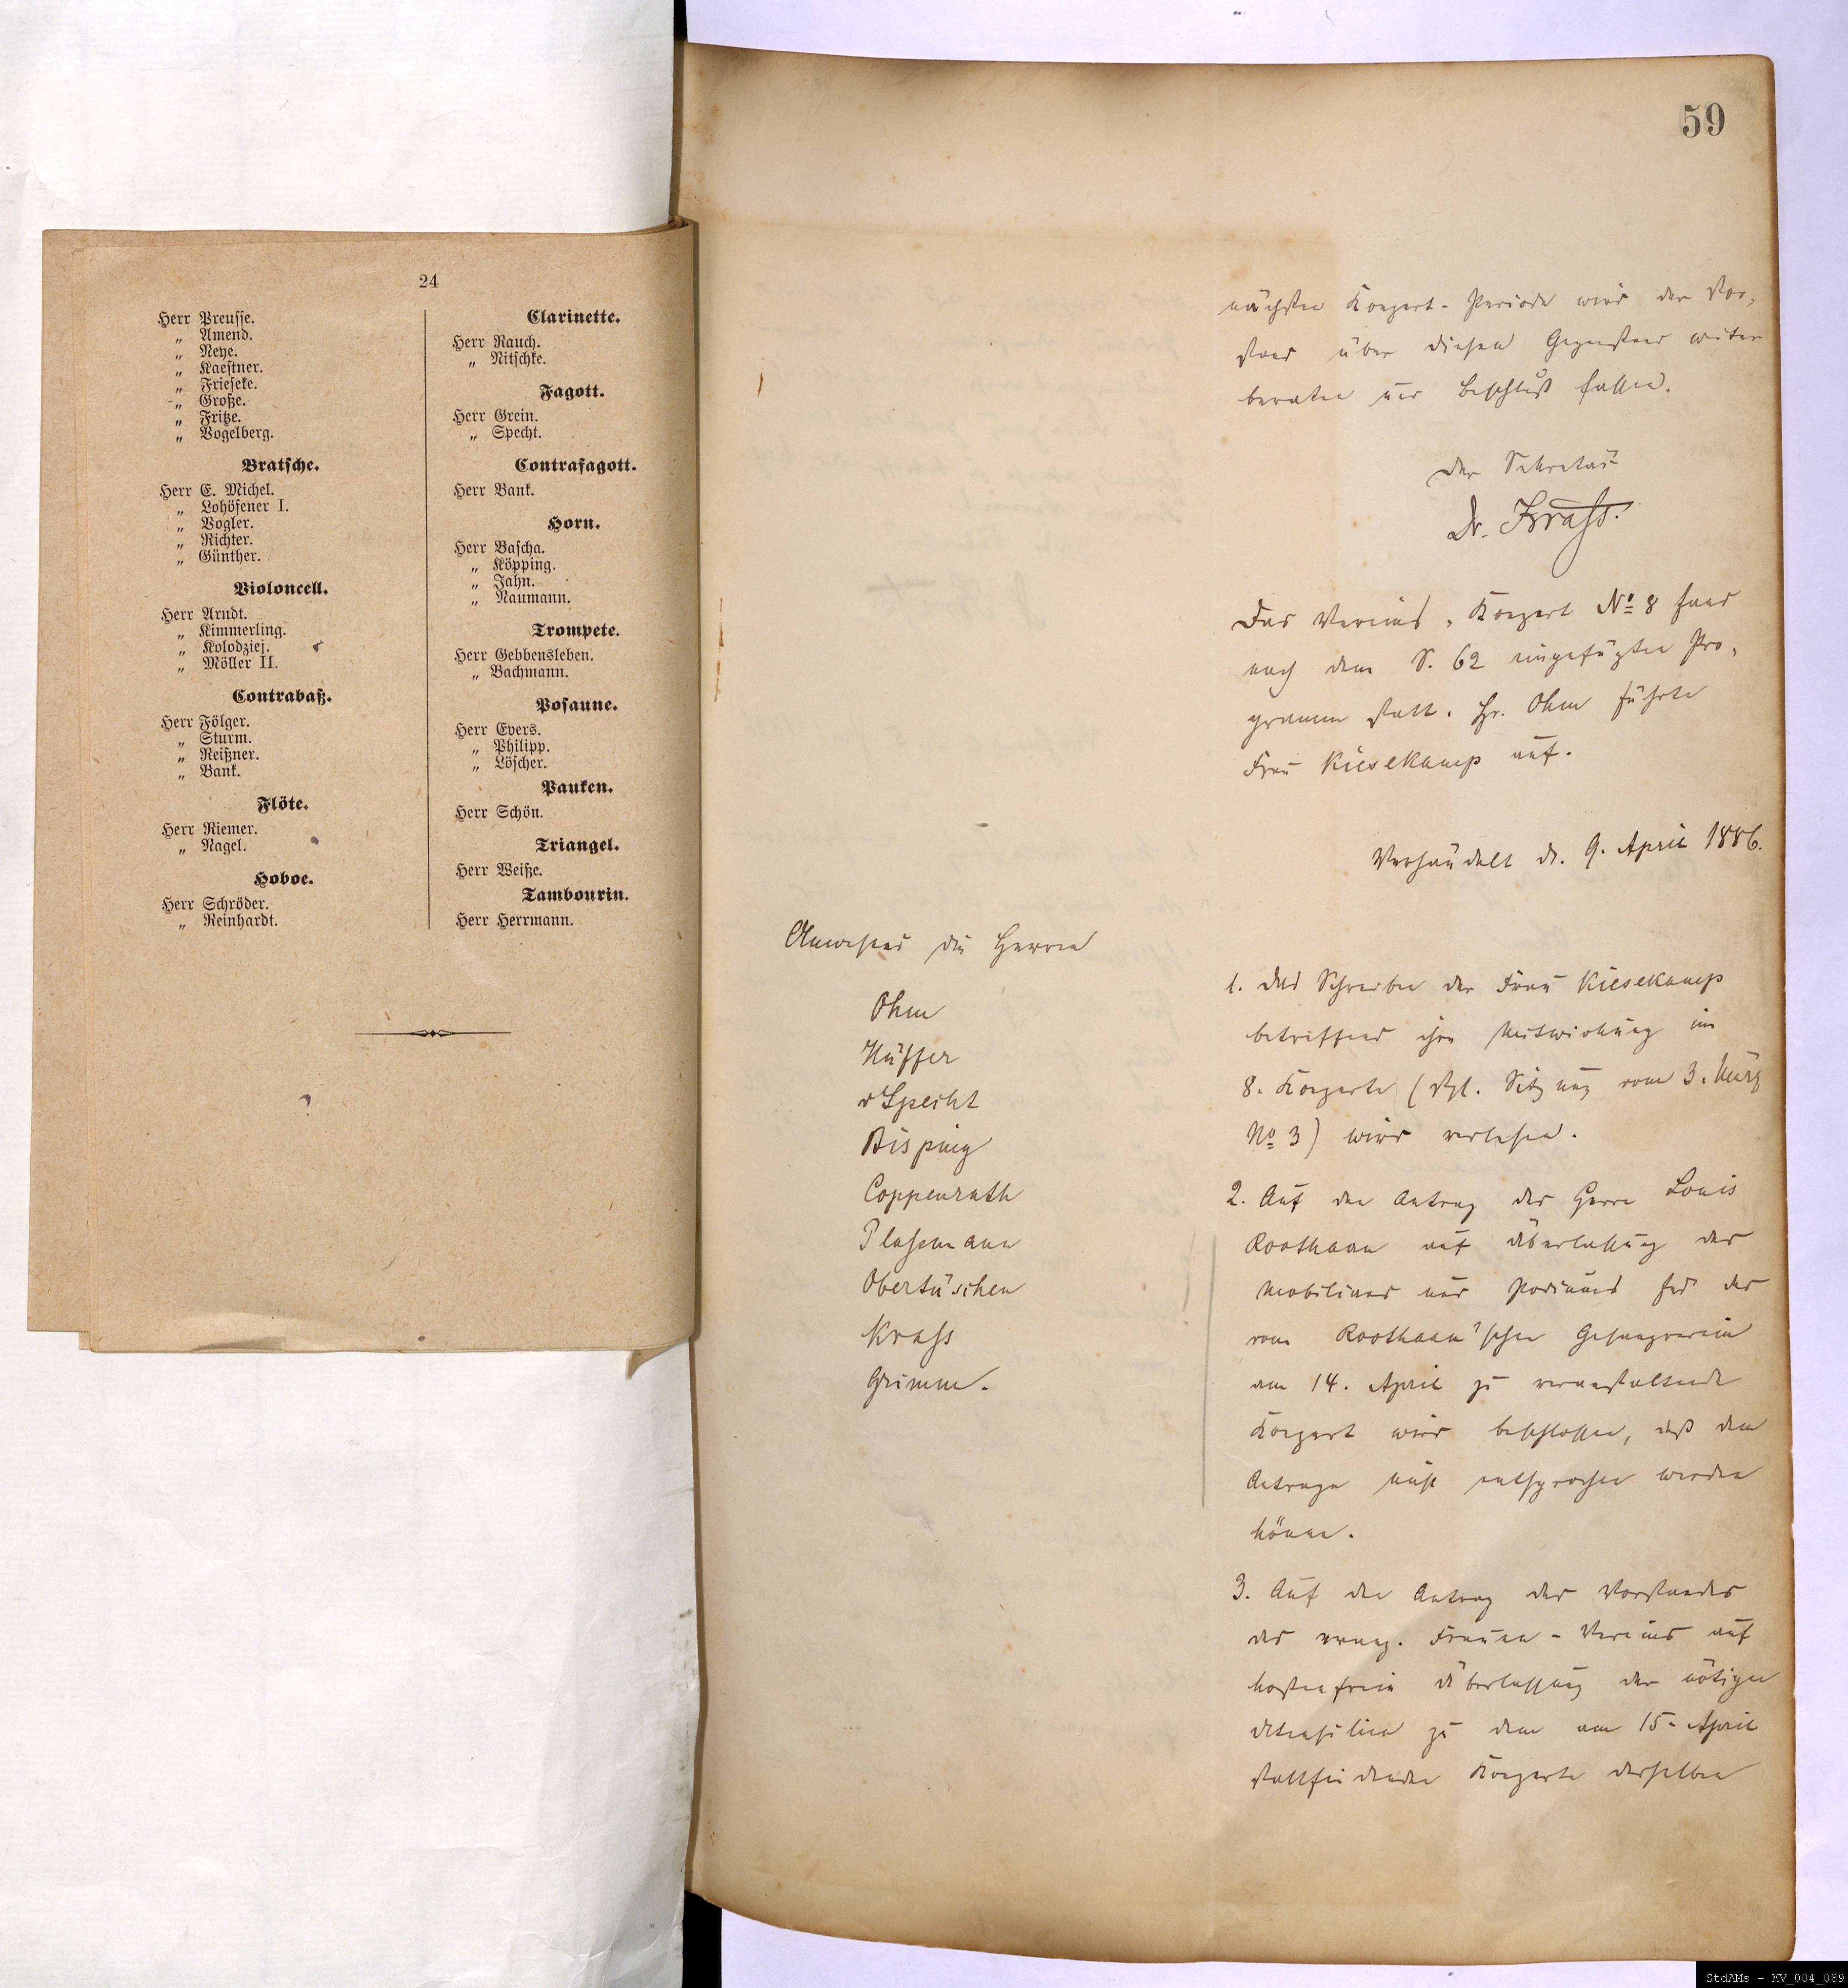 24
Herr Preusse.
„ Amend.
„ Neye.
„ Kaestner.
„ Frieseke.
„ Große.
„ Fritze.
„ Vogelberg.
Bratsche.
Herr E. Michel.
„ Lohöfener I.
„ Vogler.
„ Richter.
„ Günther.
Violoncell.
Herr Arndt.
„ Kimmerling.
„ Kolodziej.
„ Möller II.
Contrabaß.
Herr Fölger.
„ Sturm.
„ Reißner.
„ Bank.
Flöte.
Herr Riemer.
„ Nagel.
Hoboe.
Herr Schröder.
„ Reinhardt.
Clarinette.
Herr Rauch.
„ Nitschke.
Fagott.
Herr Grein.
„ Specht.
Contrafagott.
Herr Bank.
Horn.
Herr Bascha.
„ Köpping.
„ Jahn.
„ Naumann.
Trompete.
Herr Gebbensleben.
„ Bachmann.
Posaune.
Herr Evers.
„ Philipp.
„ Löscher.
Pauken.
Herr Schön.
Triangel.
Herr Weiße.
Tambourin.
Herr Herrmann.
59
nächsten Konzert-Periode wird der Vor-
stand über diesen Gegenstand weiter
beraten und Beschluß fassen.
Der Sekretär
Dr. Krass.
Das Vereins-Konzert No 8 fand
nach dem S. 62 eingefügten Pro-
gramm statt. Hr. Ohm führte
Frau Kiesekamp auf.
Verhandelt d. 9. April 1886.
Anwesend die Herren
Ohm
Hüffer
v Specht
Bisping
Coppenrath
Plassmann
Obertüschen
Krass
Grimm.
1. Das Schreiben der Frau Kiesekamp
betreffend ihre Mitwirkung im
8. Konzerte (Vgl. Sitzung vom 3. März
No 3) wird verlesen.
2. Auf den Antrag des Herrn Louis
Roothaan auf Überlassung des
Mobiliars und Podiums für das
vom Roothaan'schen Gesangverein
am 14. April zu veranstaltende
Konzert wird beschlossen, daß dem
Antrage nicht entsprochen werden
könne.
3. Auf den Antrag des Vorstandes
des evang. Frauen-Vereins auf
kostenfreie Überlassung der nötigen
Utensilien zu dem am 15. April
stattfindenden Konzerte desselben
StdAMs - MV_004_089